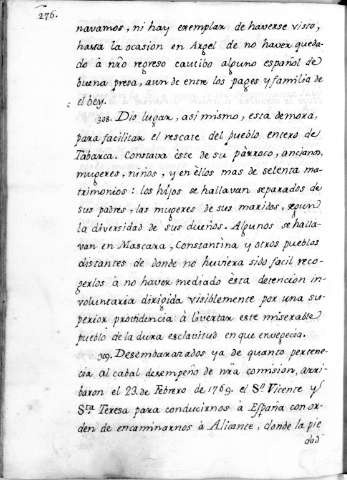 276.
navamos, ni hay exemplar de haverse visto,
hasta la ocasion en Argel de no haver queda-
do á nr̃o regreso cautibo alguno español de
buena presa, aun de entre los pages y familia de
el bey.
308. Dio lugar, asi mismo, esta demora,
para facilitar el rescate del pueblo entero de
Tabarca. Constava éste de su párroco, ancianos,
mugeres, niños, y en éllos mas de setenta ma-
trimonios: los hijos se hallavan separados de
sus padres, las mugeres de sus maridos, segun
la diversidad de sus dueños. Algunos se halla-
van en Mascara, Constantina y otros pueblos
distantes de donde no huviera sido facil reco-
gerlos á no haver mediado ésta detencion in-
voluntaria dirigida visiblemente por una su-
perior providencia à livertar este miserable
pueblo de la dura esclavitud en que envegecia.
309. Desembarazados ya de quanto pertene-
cia al cabal desempeño de nr̃a comision, arri-
baron el 23. de Febrero de 1769. el Sⁿ. Vicente y
Sᵗᵃ Teresa para conducirnos à España con or-
den de encaminarnos à Alicante, donde la pie
dad